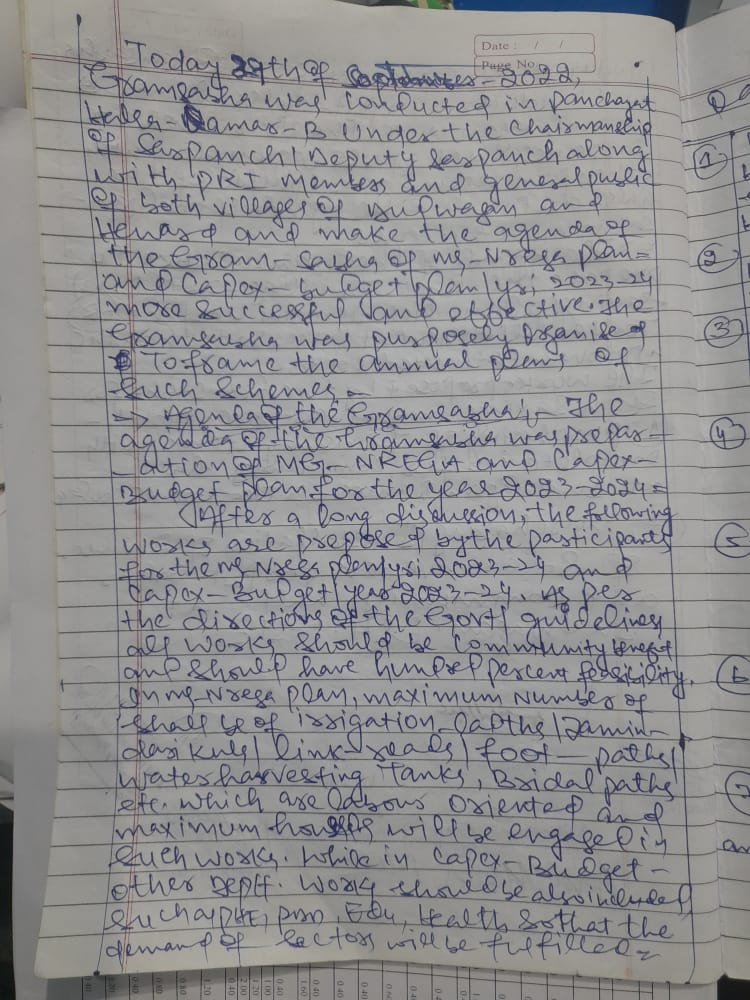 Date : / /
Page No
Today 29th of September-2022,
Gramsabha was conducted in panchayat
Halqa-Qamar-B Under the Chairmanship
of Sarpanch/Deputy Sarpanch along
with PRI Members and general public
of both villages of and
and make the agenda of
the Gram-sabha of mg-Nrega plan-
and Capex-budget plan/yr; 2023-24
more successful and effective. The
Gramsabha was purposely Organise of
To frame the annual plans of
such schemes-
→ Agenda of the Gramsabha:- The
agenda of the Gramsabha was prepar-
ation of MG-NREGA and Capex-
Budget plan for the year 2023-2024=
After a long discussion, the following
works are proposed by the participants
for the mg Nrega plan/yr; 2023-24 and
Capex-Budget/year 2023-24. As per
the directions of the Govt/ guidelines
all works should be community benefit
and should have hundred percent feasibility.
In mg-Nrega plan, maximum number of
shall be of irrigation /Zamin-
dari kuls/ link-roads/ foot-paths/
water harvesting Tanks, Bridal paths
etc. which are labour oriented and
maximum will be engaged in
such works. While in Capex-Budget-
other Deptt. works should be also included
such as PHE, PDD, Edu, Health so that the
demand of sectors will be fulfilled=
1
2
3
4
5
6
7
an
0.40
0.40
0.40
0.40